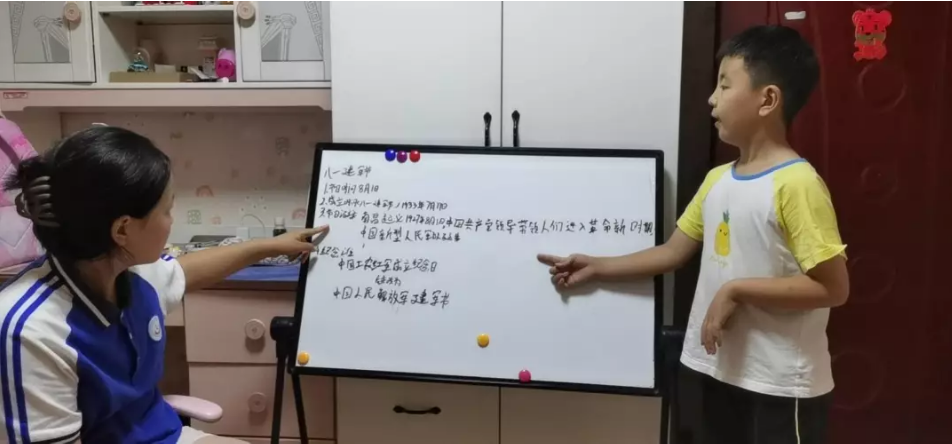 八一建军
1.节日时间8月1日
2.成立 八一建军1933年7月
3.节日 南昌起义1927 8月1日,中国共产党领导带领人们进入革命新时期
中国新型人民军队
4.纪念
中国工农红军成立纪念日
中国人民解放军建军节